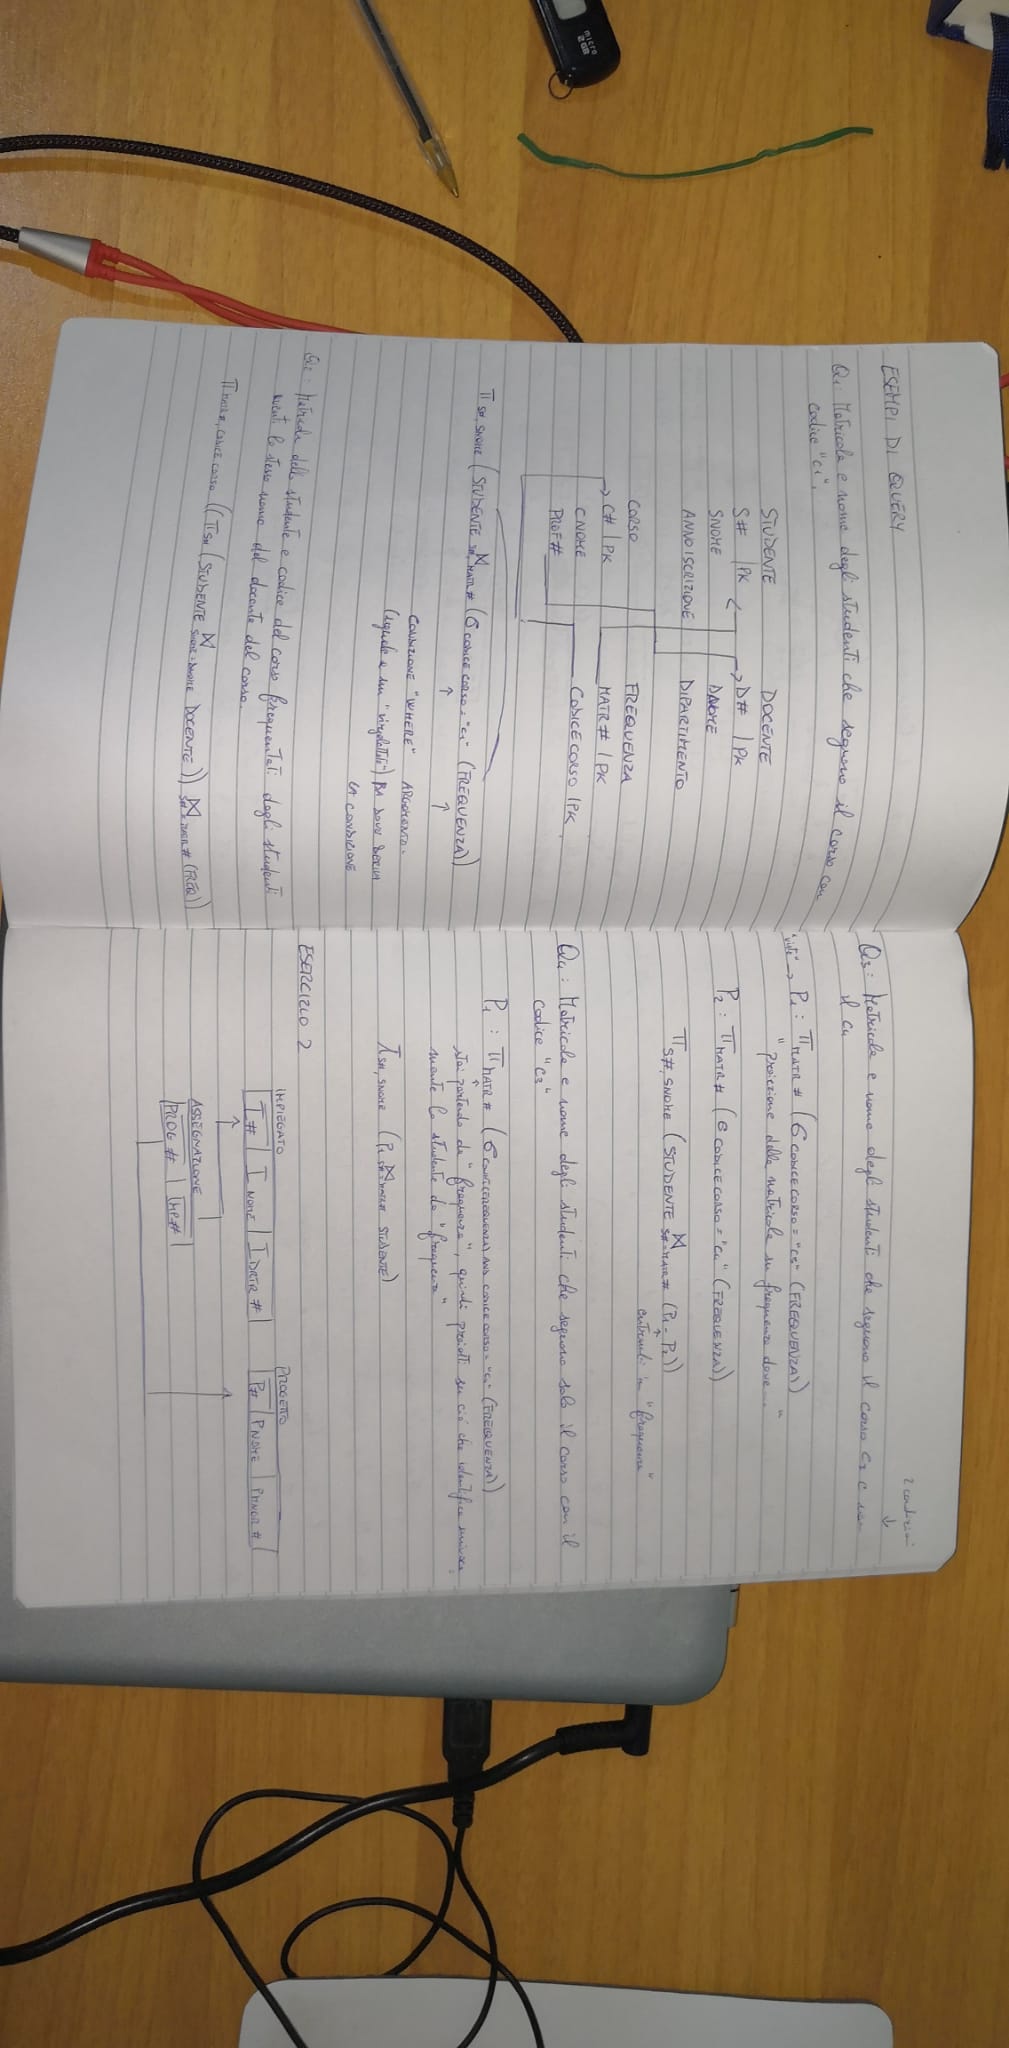 ESEMPI DI QUERY
Q1: Matricola e nome degli studenti che seguono il corso con
codice "C1".
STUDENTE DOCENTE
S# | PK D# | PK
SNOME DNOME
ANNOISCRIZIONE DIPARTIMENTO
CORSO FREQUENZA
C# | PK MATR# | PK
CNOME CODICECORSO | PK
PROF#
π S#, SNOME (STUDENTE ⋈ S#=MATR# (σ CODICECORSO = "C1" (FREQUENZA))
↑ ↑
CONDIZIONE "WHERE" ARGOMENTO.
(uguale a un "virgolettato") DA DOVE DERIVA
LA CONDIZIONE
Q2: Matricola dello studente e codice del corso frequentati dagli studenti
aventi lo stesso nome del docente del corso.
π MATR#, CODICE CORSO ((π S# (STUDENTE ⋈ SNOME=DNOME DOCENTE)) ⋈ S#=MATR# (FREQ))
2 condizioni
↓
Q3: Matricola e nome degli studenti che seguono il corso e non
il C4
"viste" → P1: π MATR# (σ CODICECORSO = (FREQUENZA))
"proiezione della matricola su frequenza dove..."
P2: π MATR# (σ CODICECORSO = "C4" (FREQUENZA))
π S#, SNOME (STUDENTE ⋈ S#=MATR# (P1 - P2))
↑
entrambi in "frequenza"
Q4: Matricola e nome degli studenti che seguono solo il corso con il
codice "C3"
P1: π MATR# (σ COUNT(FREQUENZA) AND CODICECORSO = (FREQUENZA))
↑
stai partendo da "frequenza", quindi proietti su ciò che identifica univoca
mente lo studente da "frequenza"
π S#, SNOME (P1 ⋈ S#=MATR# STUDENTE)
ESERCIZIO 2
IMPIEGATO PROGETTO
I# | I NOME | I DRTR # | P# | PNOME | PMNGR #
ASSEGNAZIONE
PROG # | IMP# |
micro
2 GB